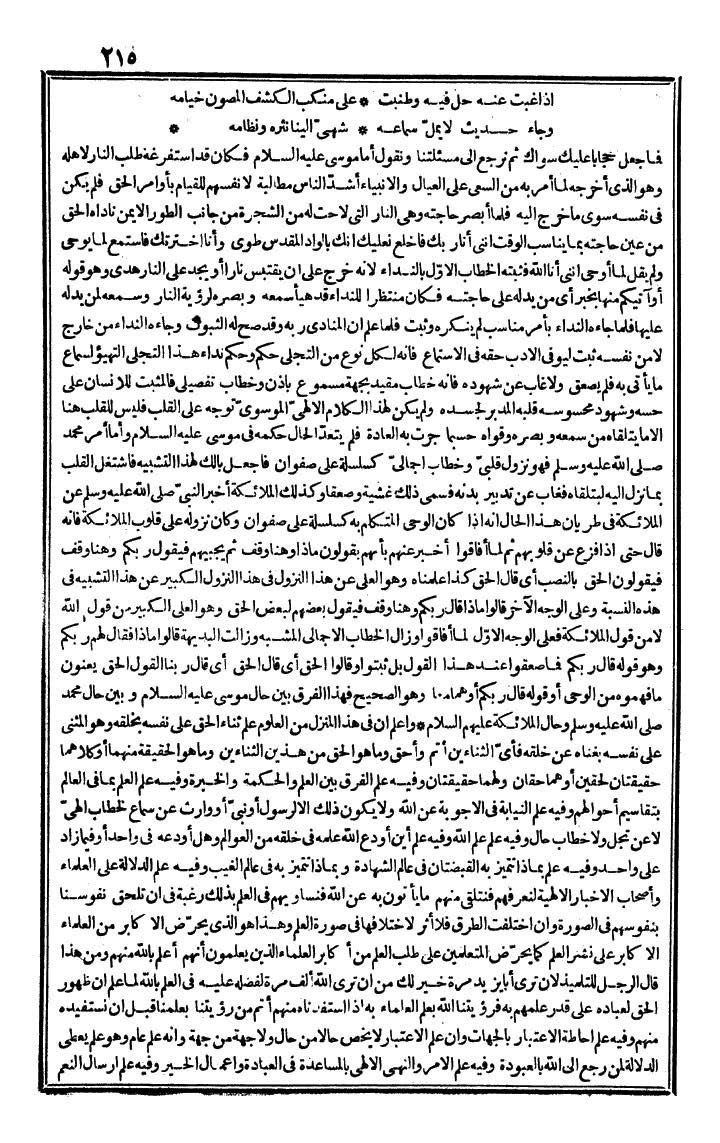 ٢١٥
اذا غبت عنه حل فيه وطنبت * على منكب الكشف المصون خيامه
وجاء حديث لا يمل سماعه * شهى الينا نثره ونظامه *
فاجعل حجابا عليك سواك ثم نرجع الى مسئلتنا ونقول أما موسى عليه السلام فكان قد استفرغه طلب النار لاهله
وهو الذى أخرجه لما أمر به من السعى على العيال والانبياء أشد الناس مطالبة لانفسهم للقيام بأوامر الحق فلم يكن
فى نفسه سوى ما خرج اليه فلما أبصر حاجته وهى النار التى لاحت له من الشجرة من جانب الطور الايمن ناداه الحق
من عين حاجته بما يناسب الوقت انى أنا ربك فاخلع نعليك انك بالواد المقدس طوى وأنا اخترتك فاستمع لما يوحى
ولم يقل لما أوحى اننى أنا الله فثبته الخطاب الاول بالنداء لانه خرج على ان يقتبس نارا أو يجد على النار هدى وهو قوله
أو آتيكم منها بخبر أى من يدله على حاجته فكان منتظرا للنداء قد هيأ سمعه وبصره لرؤية النار وسمعه لمن يدله
عليها فلما جاءه النداء بأمر مناسب لم ينكره وثبت فلما علم ان المنادى ربه وقد صح له الثبوت وجاءه النداء من خارج
لا من نفسه ثبت ليوفى الادب حقه فى الاستماع فانه لكل نوع من التجلى حكم وحكم نداء هذا التجلى التهيؤ لسماع
ما يأتى به فلم يصعق ولا غاب عن شهوده فانه خطاب مقيد بجهة مسموع باذن وخطاب تفصيلى فالمثبت للانسان على
حسه وشهود محسوسه قلبه المدبر لجسده ولم يكن لهذا الكلام الالهى الموسوى توجه على القلب فليس للقلب هنا
الا ما يتلقاه من سمعه وبصره وقواه حسبما جرت به العادة فلم يتعد الحال حكمه فى موسى عليه السلام وأما أمر محمد
صلى الله عليه وسلم فهو نزول قلبى وخطاب اجمالى كسلسلة على صفوان فاجعل بالك لهذا التشبيه فاشتغل القلب
بما نزل اليه ليتلقاه فغاب عن تدبير بدنه فسمى ذلك غشية وصعقا وكذلك الملائكة أخبر النبى صلى الله عليه وسلم عن
الملائكة فى طريان هذا الحال انه اذا كان الوحى المتكلم به كسلسلة على صفوان وكان نزوله على قلوب الملائكة فانه
قال حتى اذا فزع عن قلوبهم ثم لما أفاقوا أخبر عنهم بأنهم يقولون ماذا وهنا وقف ثم يجيبهم فيقول ربكم وهنا وقف
فيقولون الحق بالنصب أى قال الحق كذا علمناه وهو العلى عن هذا النزول فى هذا النزول الكبير عن هذا التشبيه فى
هذه النسبة وعلى الوجه الآخر قالوا ماذا قال ربكم وهنا وقف فيقول بعضهم لبعض الحق وهو العلى الكبير من قول الله
لا من قول الملائكة فعلى الوجه الاول لما أفاقوا وزال الخطاب الاجمالى المشبه وزالت البديهة قالوا ماذا فقال لهم ربكم
وهو قوله قال ربكم فما صعقوا عند هذا القول بل ثبتوا وقالوا الحق أى قال الحق أى قال ربنا القول الحق يعنون
ما فهموه من الوحى أو قوله قال ربكم أو هما معا وهو الصحيح فهذا الفرق بين حال موسى عليه السلام وبين حال محمد
صلى الله عليه وسلم وحال الملائكة عليهم السلام * واعلم ان فى هذا المنزل من العلوم علم ثناء الحق على نفسه بخلقه وهو المثنى
على نفسه بغناه عن خلقه فأى الثناءين أتم وأحق وما هو الحق من هذين الثناءين وما هو الحقيقة منهما أو كلاهما
حقيقتان لحقين أو هما حقان ولهما حقيقتان وفيه علم الفرق بين العلم والحكمة والخبرة وفيه علم العلم بما فى العالم
بتقاسيم أحوالهم وفيه علم النيابة فى الاجوبة عن الله ولا يكون ذلك الا لرسول أو نبى أو وارث عن سماع لخطاب الهى
لا عن تجل ولا خطاب حال وفيه علم علم الله وفيه علم أين أودع الله علمه فى خلقه من العوالم وهل أودعه فى واحد أو فيما زاد
على واحد وفيه علم بماذا تتميز به القبضتان فى عالم الشهادة وبماذا تتميز به فى عالم الغيب وفيه علم الدلالة على العلماء
وأصحاب الاخبار الالهية لنعرفهم فنتلقى منهم ما يأتون به عن الله فنساويهم فى العلم بذلك رغبة فى ان تلحق نفوسنا
بنفوسهم فى الصورة وان اختلفت الطرق فلا أثر لاختلافها فى صورة العلم وهذا هو الذى يحرض الاكابر من العلماء
الاكابر على نشر العلم كما يحرض المتعلمين على طلب العلم من أكابر العلماء الذين يعلمون أنهم أعلم بالله منهم ومن هذا
قال الرجل للتلميذ لان ترى أبا يزيد مرة خير لك من ان ترى الله ألف مرة لفضله عليه فى العلم بالله لما علم ان ظهور
الحق لعباده على قدر علمهم به فرؤيتنا الله بعلم العلماء به اذا استفدناه منهم أتم من رؤيتنا بعلمنا قبل ان نستفيده
منهم وفيه علم احاطة الاعتبار بالجهات وان علم الاعتبار لا يخص حالا من حال ولا جهة من جهة وانه علم عام وهو علم يعطى
الدلالة لمن رجع الى الله بالعبودة وفيه علم الامر والنهى الالهى بالمساعدة فى العبادة واعمال الخير وفيه علم ارسال النعم